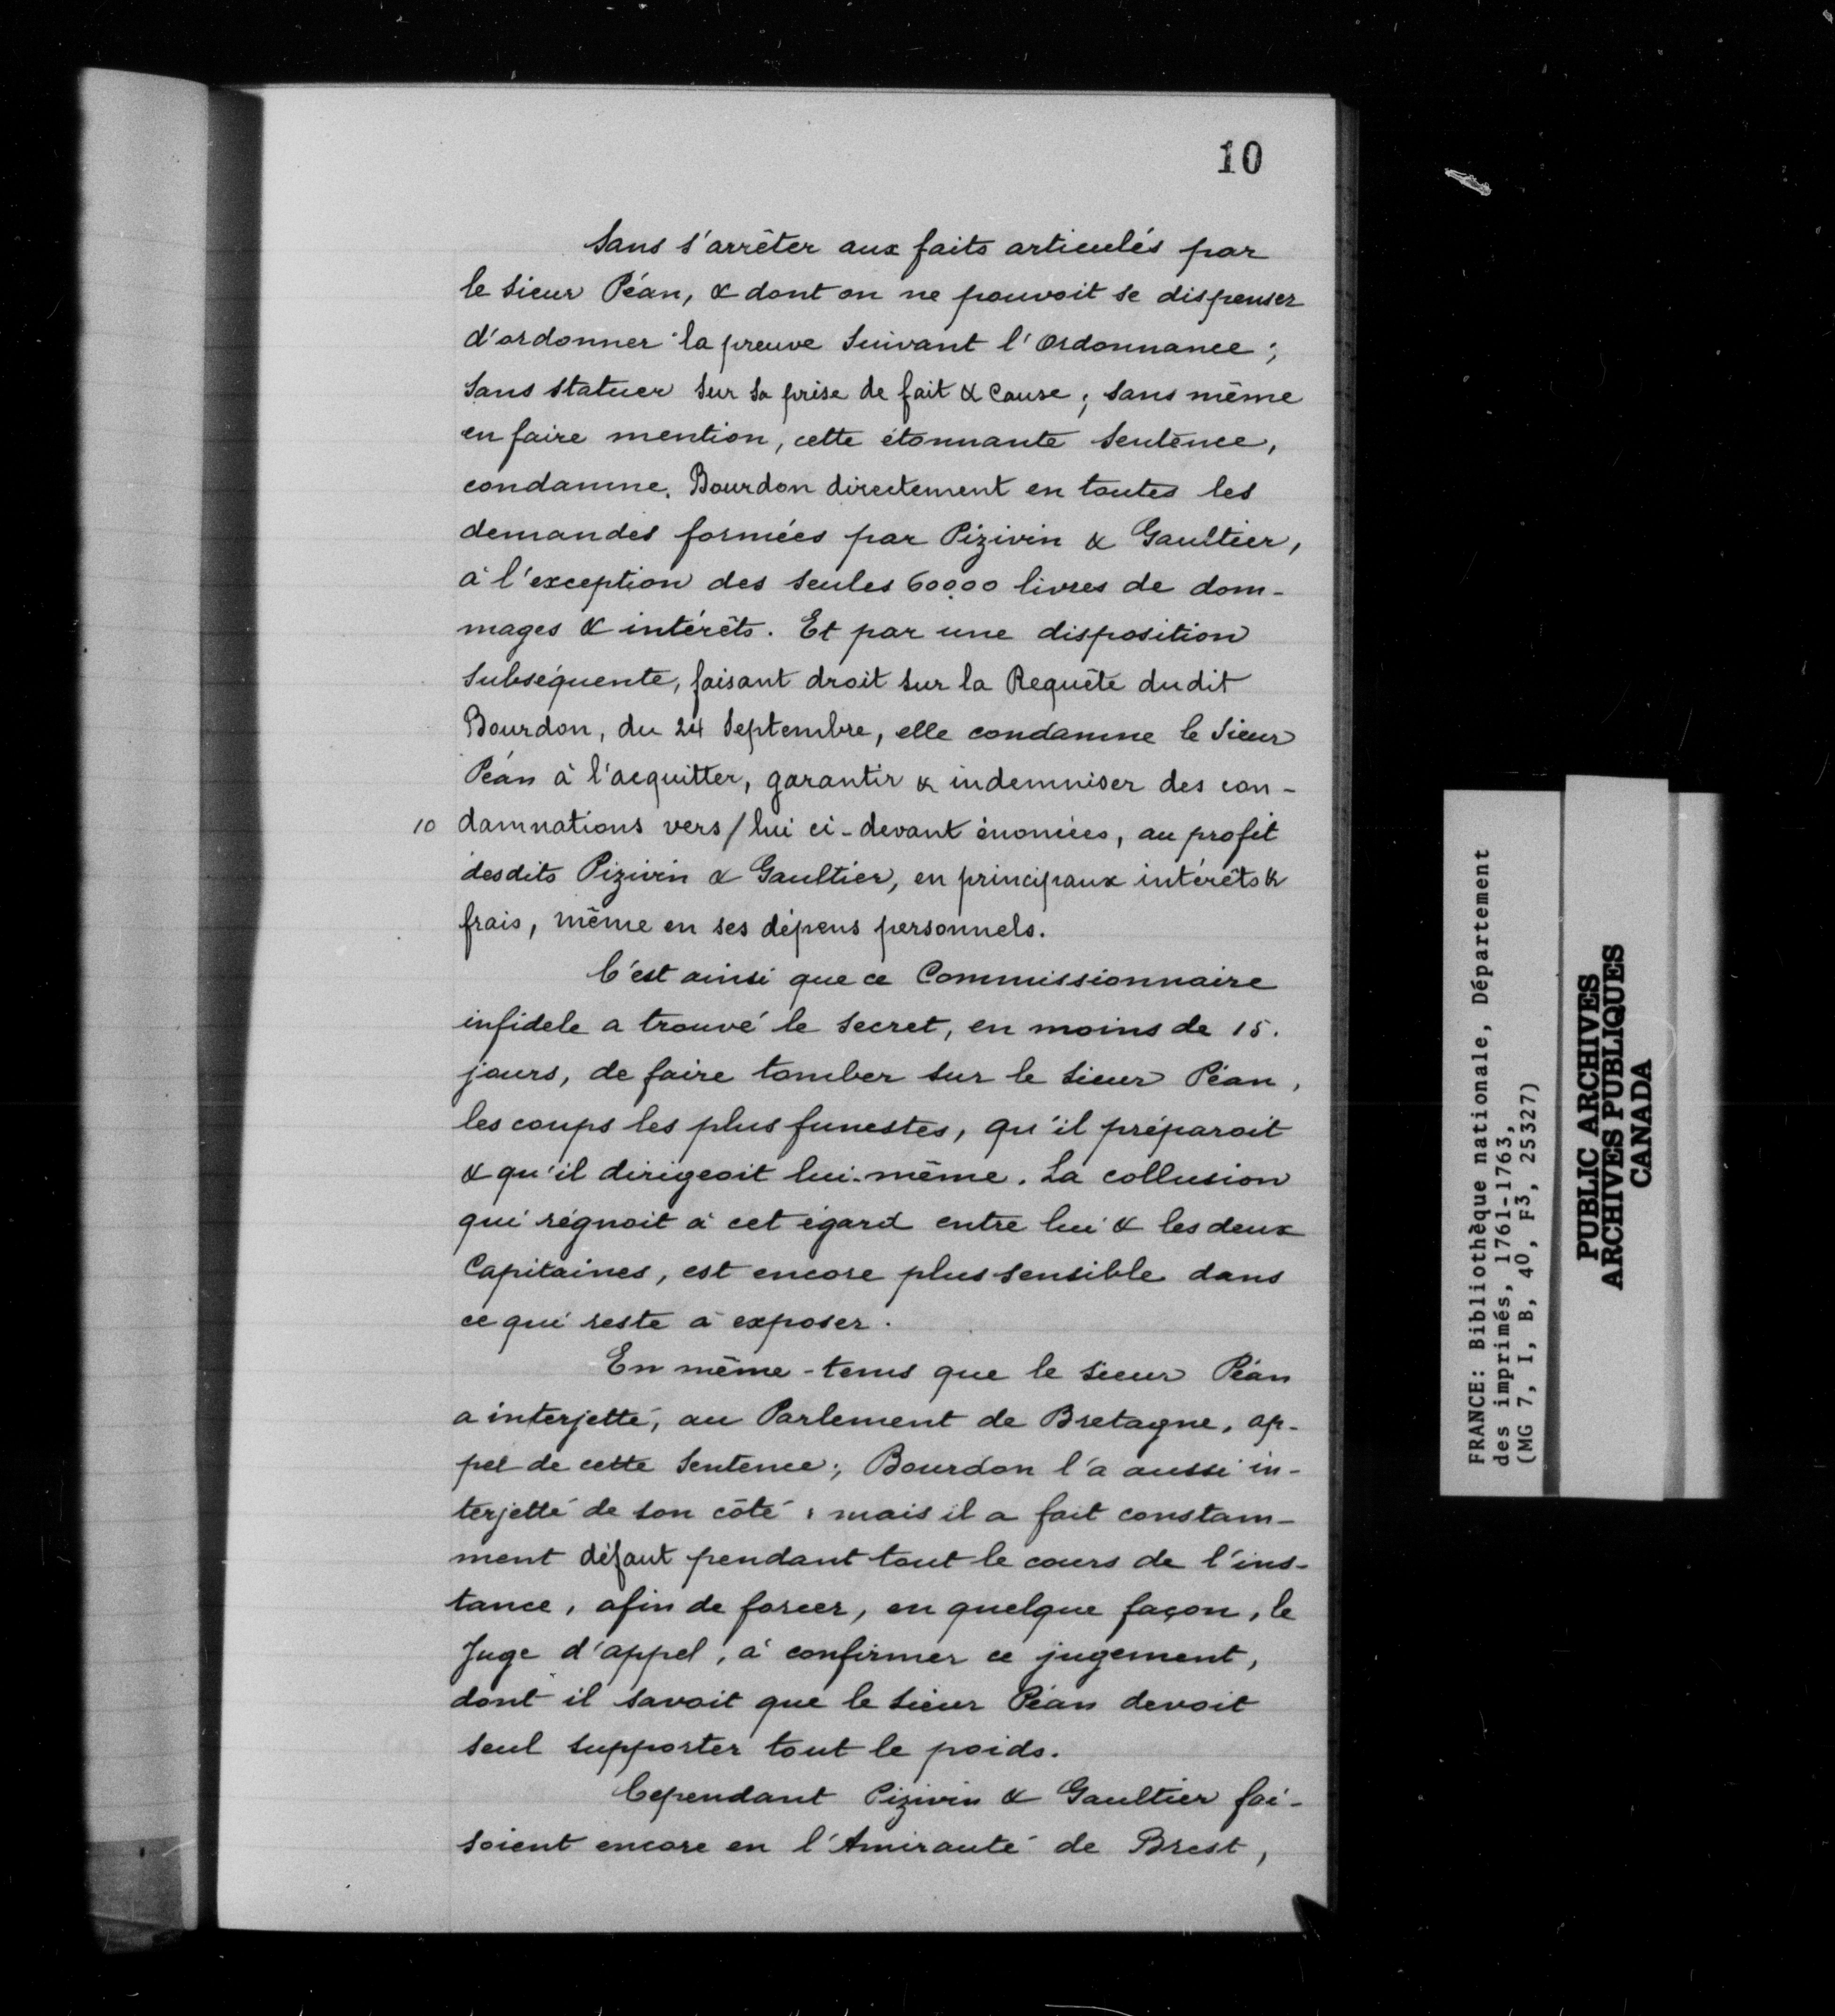 10
Sans s'arrêter aux faits articulés par
le Sieur Péan, & dont on ne pouvoit se dispenser
d'ordonner la preuve Suivant l'Ordonnance ;
Sans statuer Sur Sa prise de fait & Cause ; sans même
en faire mention, cette étonnante Sentence,
condamne, Bourdon directement en toutes les
demandes formées par Pizivin & Gaultier,
à l'exception des Seules 60000 livres de dom-
mages & intérêts. Et par une disposition
Subséquente, faisant droit sur la Requête dudit
Bourdon, du 24 Septembre, elle condamne le Sieur
Péan à l'acquitter, garantir & indemniser des con-
10 damnations vers / lui ci-devant énoncées, au profit
desdits Pizivin & Gaultier, en principaux intérêts &
frais, même en ses dépens personnels.
C'est ainsi que ce Commissionnaire
infidele a trouvé le secret, en moins de 15.
jours, de faire tomber sur le Sieur Péan,
les coups les plus funestes, qu'il préparoit
& qu'il dirigeoit lui-même. La collusion
qui régnoit à cet égard entre lui & les deux
Capitaines, est encore plus sensible dans
ce qui reste à exposer.
En même-tems que le Sieur Péan
a interjetté, au Parlement de Bretagne, ap-
pel de cette Sentence ; Bourdon l'a aussi in-
terjetté de son côté ; mais il a fait constam-
ment défaut pendant tout le cours de l'ins-
tance, afin de forcer, en quelque façon, le
Juge d'appel, à confirmer ce jugement,
dont il savoit que le Sieur Péan devoit
seul supporter tout le poids.
Cependant Pizivin & Gaultier fai-
soient encore en l'Amirauté de Brest,
FRANCE: Bibliothèque nationale, Département
des imprimés, 1761-1763,
(MG 7, I, B, 40, F3, 25327)
PUBLIC ARCHIVES
ARCHIVES PUBLIQUES
CANADA